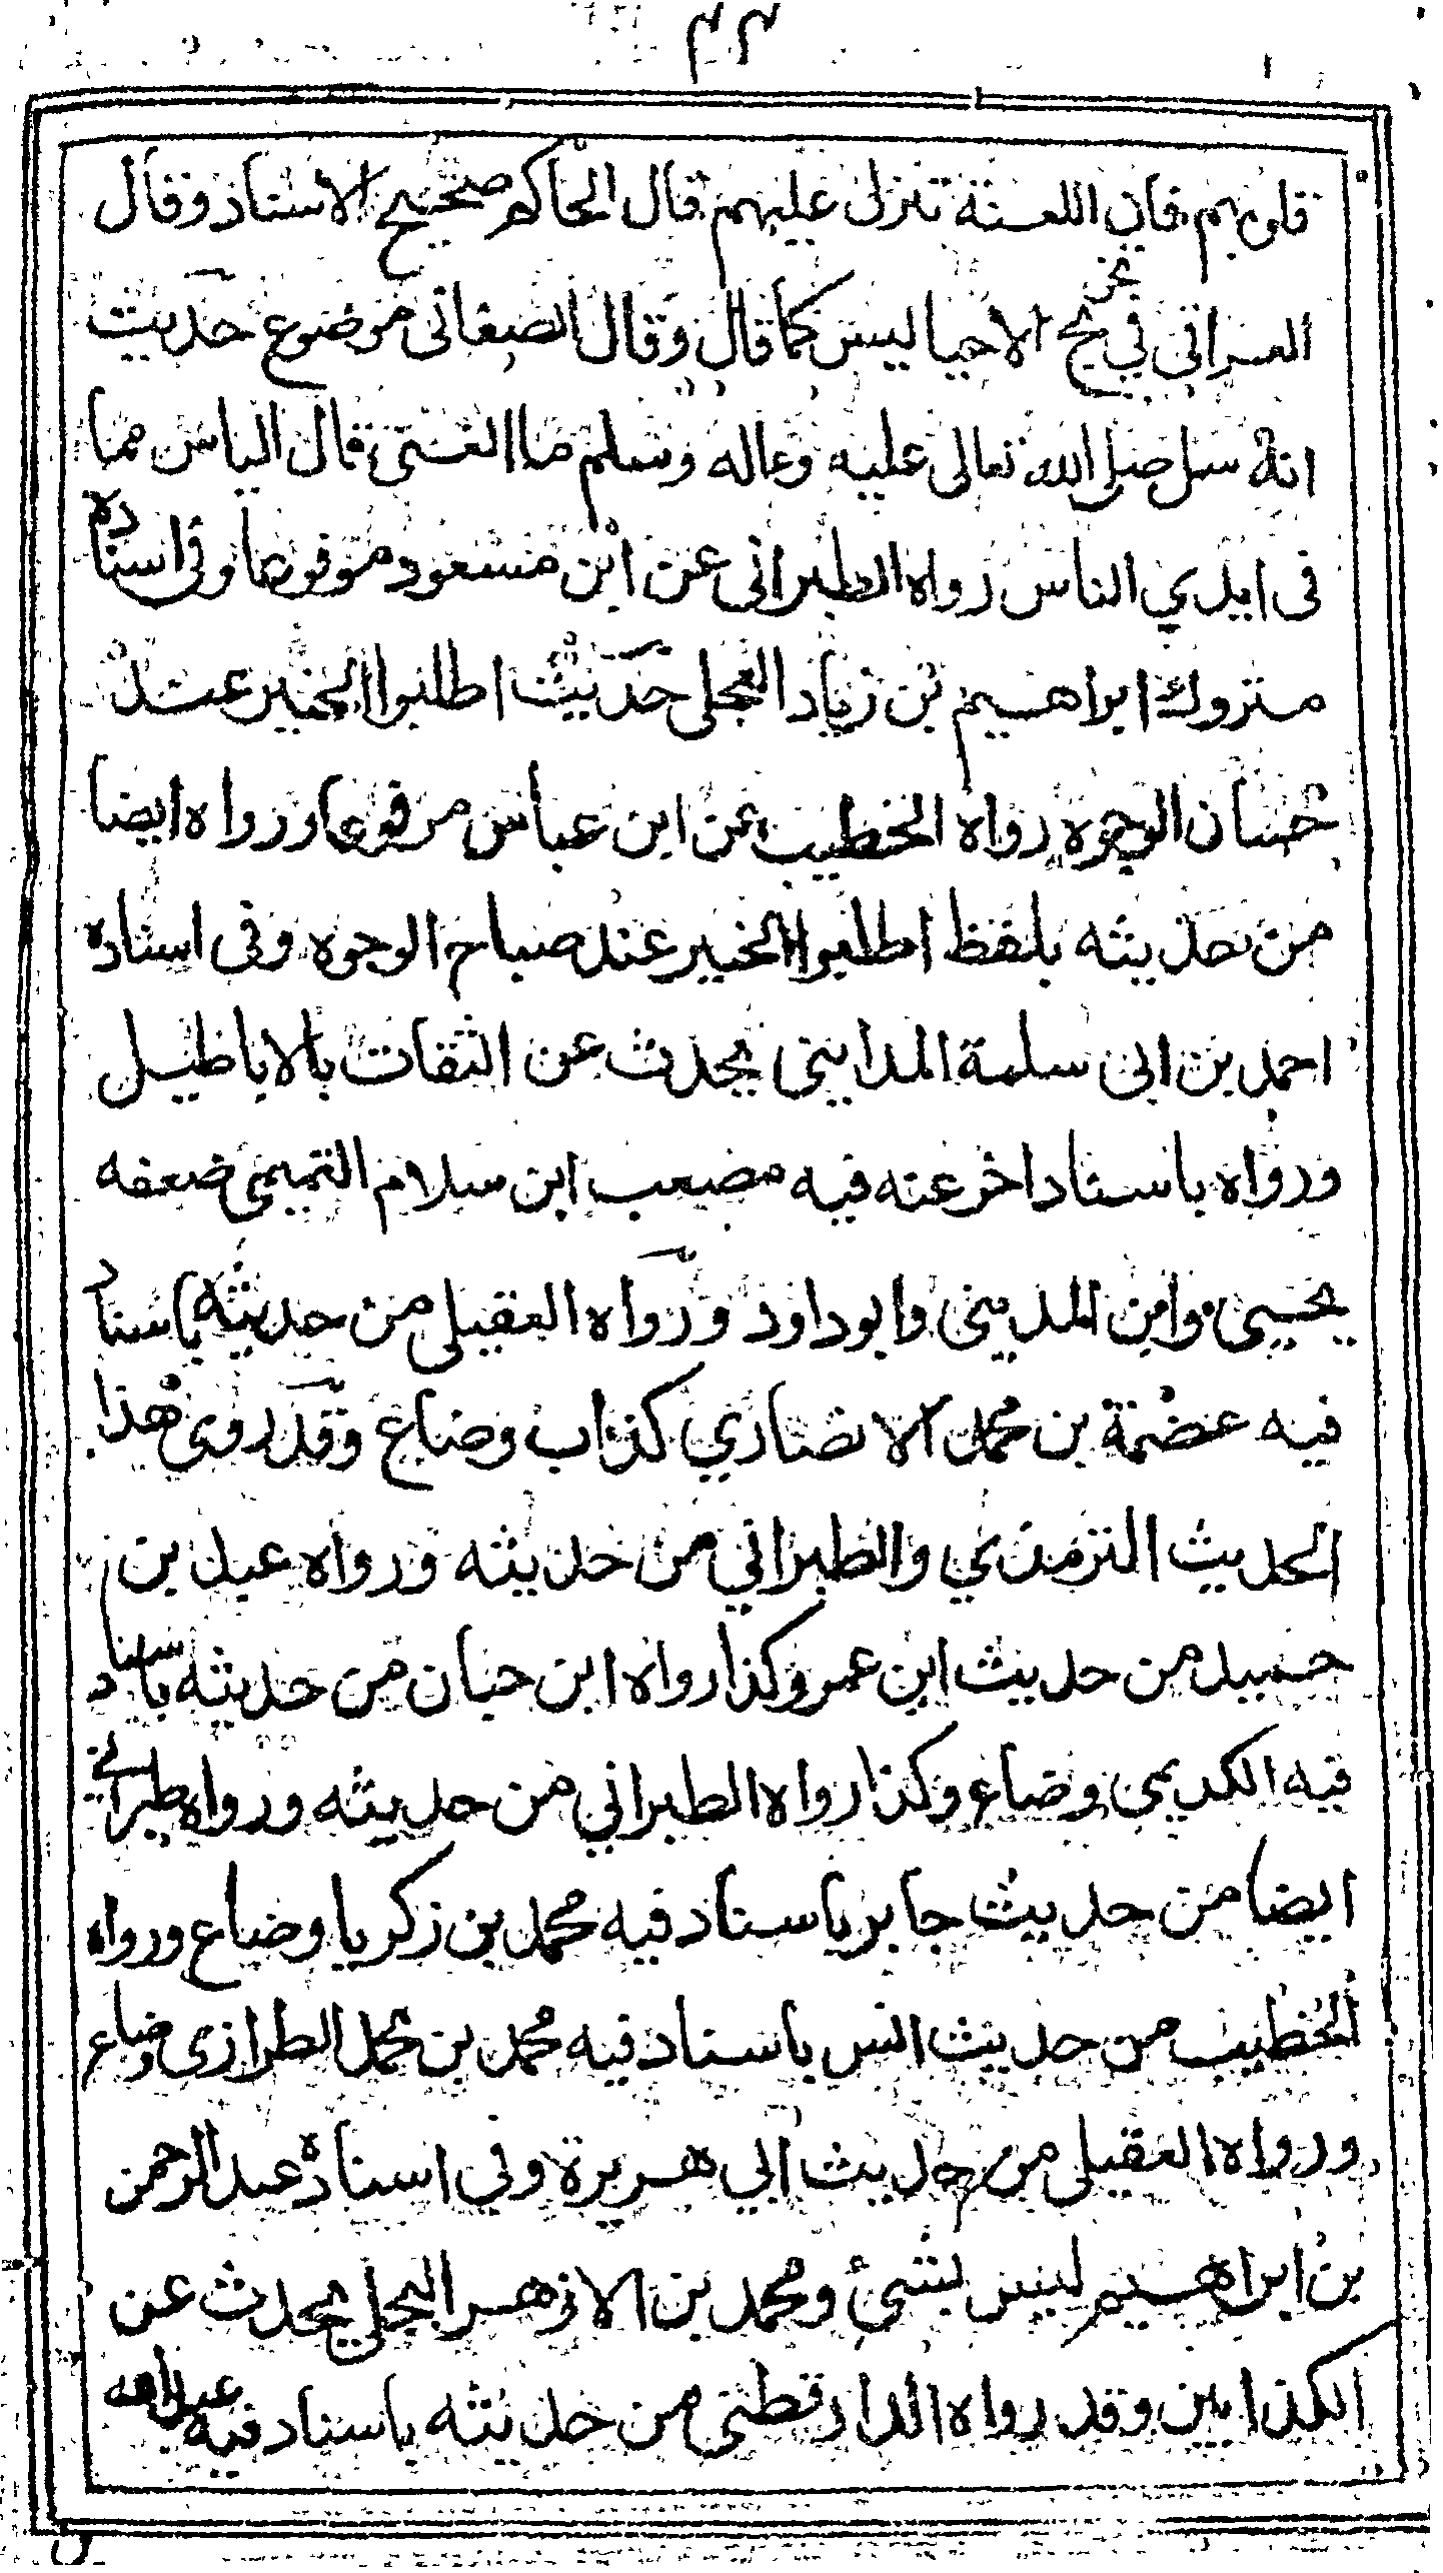 ٢٢
قلوبهم فان اللعنة تنزل عليهم قال الحاكم صحيح الاسناد وقال
العراقى في تخريج الاحيا ليس كما قال وقال الصغانى موضوع حديث
انه سئل صلى الله تعالى عليه وعاله وسلم ما الغنى قال الياس مما
فى ايدي الناس رواه الطبرانى عن ابن مسعود مرفوعا وفى اسناده
متروك ابراهيم بن زياد العجلى حديث اطلبوا الخير عند
حسان الوجوه رواه الخطيب عن ابن عباس مرفوعا ورواه ايضا
من حديثه بلفظ اطلبوا الخير عند صباح الوجوه وفى اسناده
احمد بن ابى سلمة المداينى يحدث عن الثقات بالاباطيل
ورواه باسناد اخر عنه فيه مصعب ابن سلام التميمى ضعفه
يحيى وابن المدينى وابو داود ورواه العقيلى من حديثه باسناد
فيه عصمة بن محمد الانصاري كذاب وضاع وقد روى هذا
الحديث الترمذي والطبراني من حديثه ورواه عبد بن
حميد من حديث ابن عمر وكذا رواه ابن حبان من حديثه باسناد
فيه الكديمى وضاع وكذا رواه الطبراني من حديثه ورواه طبراني
ايضا من حديث جابر باسناد فيه محمد بن زكريا وضاع ورواه
الخطيب من حديث انس باسناد فيه محمد بن محمد الطرازى وضاع
ورواه العقيلى من حديث ابي هريرة وفي اسناده عبد الرحمن
بن ابراهيم ليس بشئ ومحمد بن الازهر البجلى يحدث عن
الكذابين وقد رواه الدارقطنى من حديثه باسناد فيه عبد الله